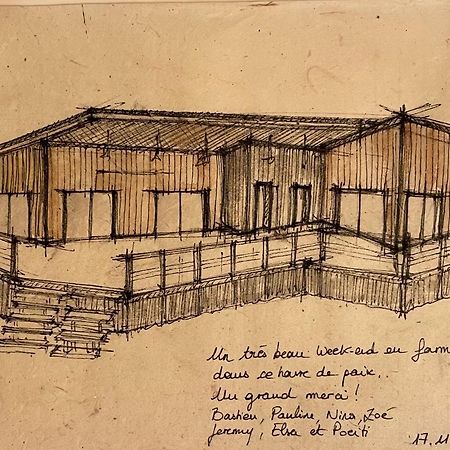 Un très beau week-end en fam
dans ce havre de paix..
Un grand merci !
Bastien, Pauline, Nino, Zoé
Jeremy, Elsa et Pociti
17.11